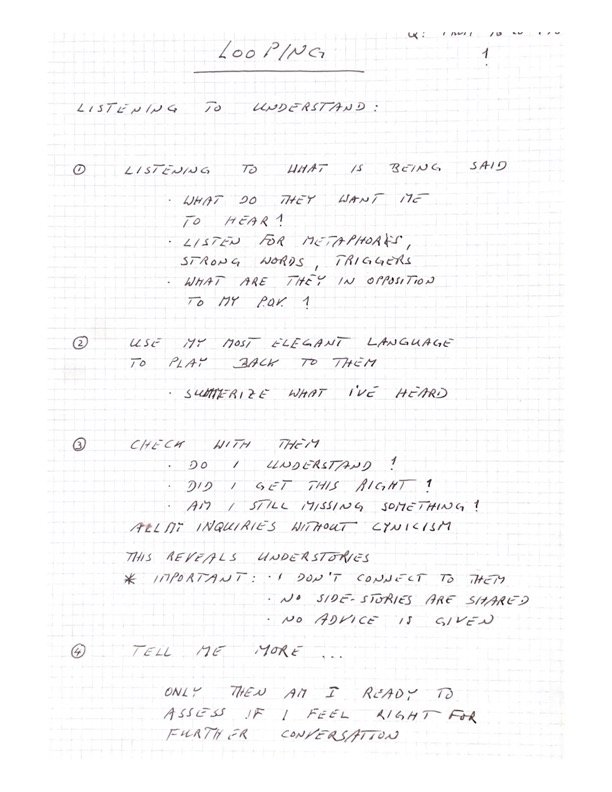 LOOPING
LISTENING TO UNDERSTAND:
① LISTENING TO WHAT IS BEING SAID
· WHAT DO THEY WANT ME
TO HEAR?
· LISTEN FOR METAPHORES,
STRONG WORDS, TRIGGERS
· WHAT ARE THEY IN OPPOSITION
TO MY P.O.V. ?
② USE MY MOST ELEGANT LANGUAGE
TO PLAY BACK TO THEM
· SUMMERIZE WHAT I'VE HEARD
③ CHECK WITH THEM
· DO I UNDERSTAND ?
· DID I GET THIS RIGHT ?
· AM I STILL MISSING SOMETHING ?
ALL MY INQUIRIES WITHOUT CYNICISM
THIS REVEALS UNDERSTORIES
* IMPORTANT: · I DON'T CONNECT TO THEM
· NO SIDE-STORIES ARE SHARED
· NO ADVICE IS GIVEN
④ TELL ME MORE ...
ONLY THEN AM I READY TO
ASSESS IF I FEEL RIGHT FOR
FURTHER CONVERSATION